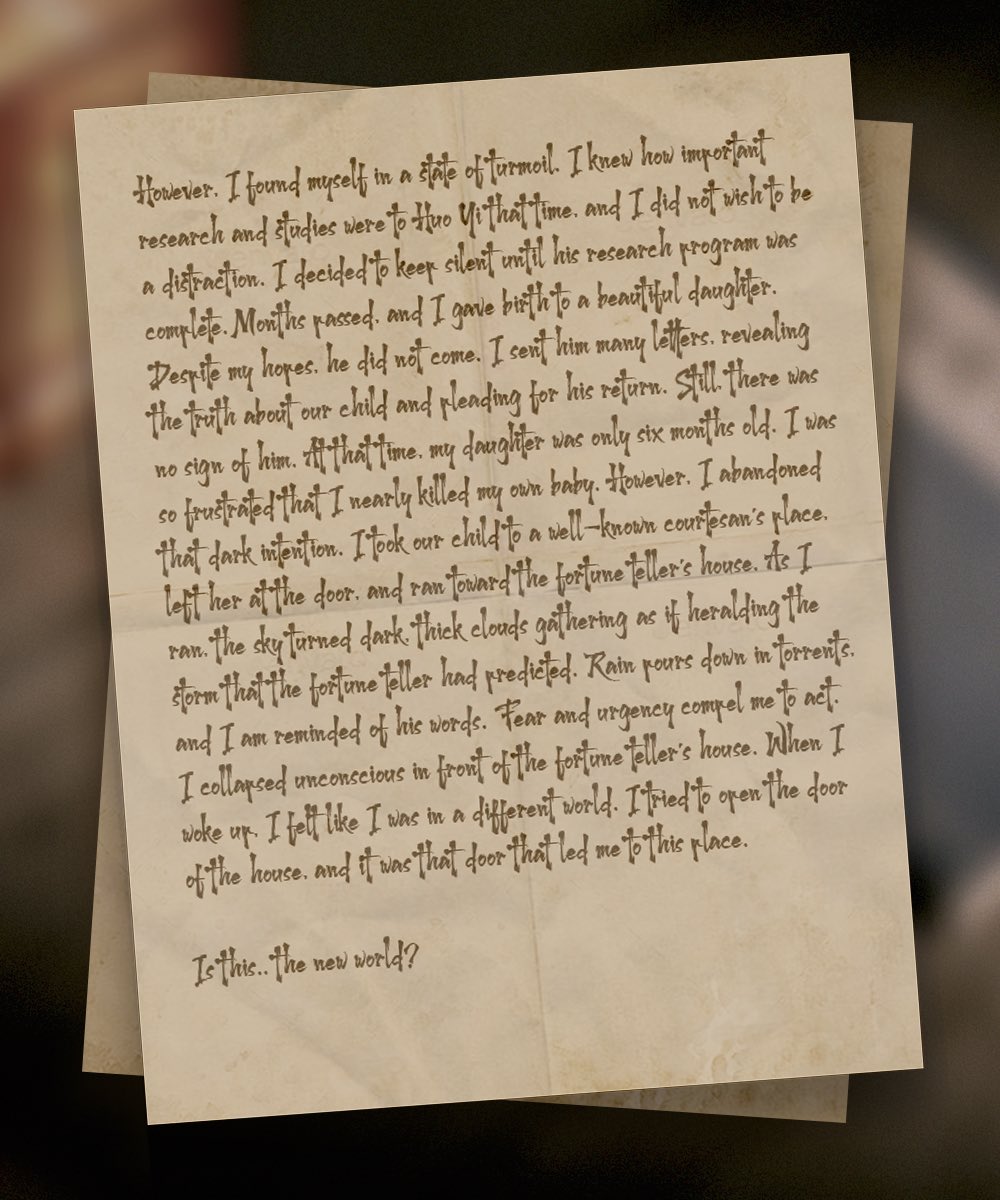 However, I found myself in a state of turmoil. I knew how important
research and studies were to Huo Yi that time, and I did not wish to be
a distraction. I decided to keep silent until his research program was
complete. Months passed, and I gave birth to a beautiful daughter.
Despite my hopes, he did not come. I sent him many letters, revealing
the truth about our child and pleading for his return. Still, there was
no sign of him. At that time, my daughter was only six months old. I was
so frustrated that I nearly killed my own baby. However, I abandoned
that dark intention. I took our child to a well-known courtesan's place,
left her at the door, and ran toward the fortune teller's house. As I
ran, the sky turned dark, thick clouds gathering as if heralding the
storm that the fortune teller had predicted. Rain pours down in torrents,
and I am reminded of his words. Fear and urgency compel me to act.
I collapsed unconscious in front of the fortune teller's house. When I
woke up, I felt like I was in a different world. I tried to open the door
of the house, and it was that door that led me to this place.
Is this.. the new world?